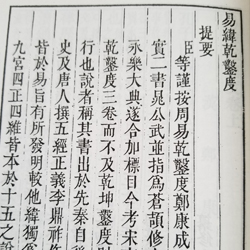 易緯乾鑿度
提要
臣等謹按周易乾鑿度鄭康成
實二書晁公武並指為蒼頡修
永樂大典遂合加標目今考宋
乾鑿度三卷而不及乾坤鑿度
行也說者稱其書出於先秦自
史及唐人撰五經正義李鼎祚作
皆於易旨有所發明較他緯獨為
九宮四正四維皆本於十五之說